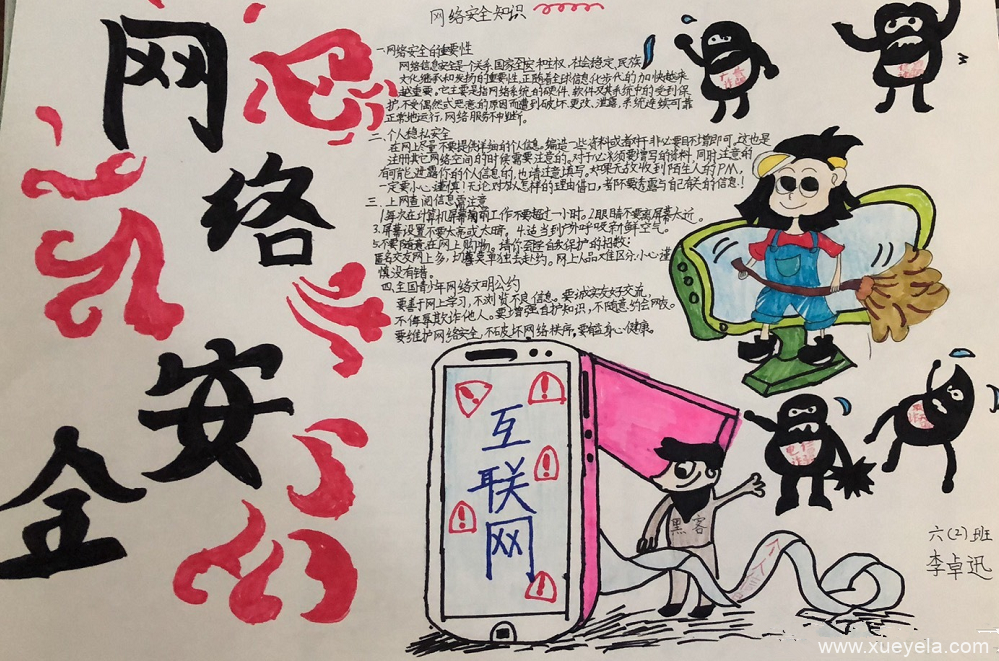 网络安全知识
网络安全
一.网络安全的重要性
网络信息安全是一个关乎国家安全和主权,社会稳定,民族
文化继承和发扬的重要性.正随着全球信息化步伐的加快越来
越重要,它主要是指网络系统的硬件,软件及其系统中的受到保
护,不受偶然或恶意的原因而遭到破坏.更改,泄露,系统连续可靠
正常地运行,网络服务不中断。
二、个人隐私安全
在网上尽量不要提供详细的个人信息。编造一些资料或者对于非必要目不填即可,这也是
注册其它网络空间的时候需要注意的。对于必须要填写的资料,同时注意的
有可能泄露你的个人信息的,也请注意填写。如果无故收到陌生人的
一定要小心、谨慎!无论对方怎样的理由借口,者阝不要透露与自己有关的信息!
三、上网查阅信息需注意
1.每次在计算机屏幕前的工作不要超过一小时。2.眼睛不要离屏幕太近。
3.屏幕设置不要太亮或太暗。4.适当到户外呼吸新鲜空气。
5.不要随意在网上购物。
匿名交友网上多,切莫单独去赴约。网上人品难区分,小心谨
慎没有错。
四.全国青少年网络文明公约
要善于网上学习,不浏览不良信息。要诚实友好交流
不侮辱欺诈他人。要增强自护知识,不随意约会网友。
要维护网络安全,不破坏网络秩序。要有益身心健康。
互联网
黑客
六(2)班
李卓迅
www.xueyela.com